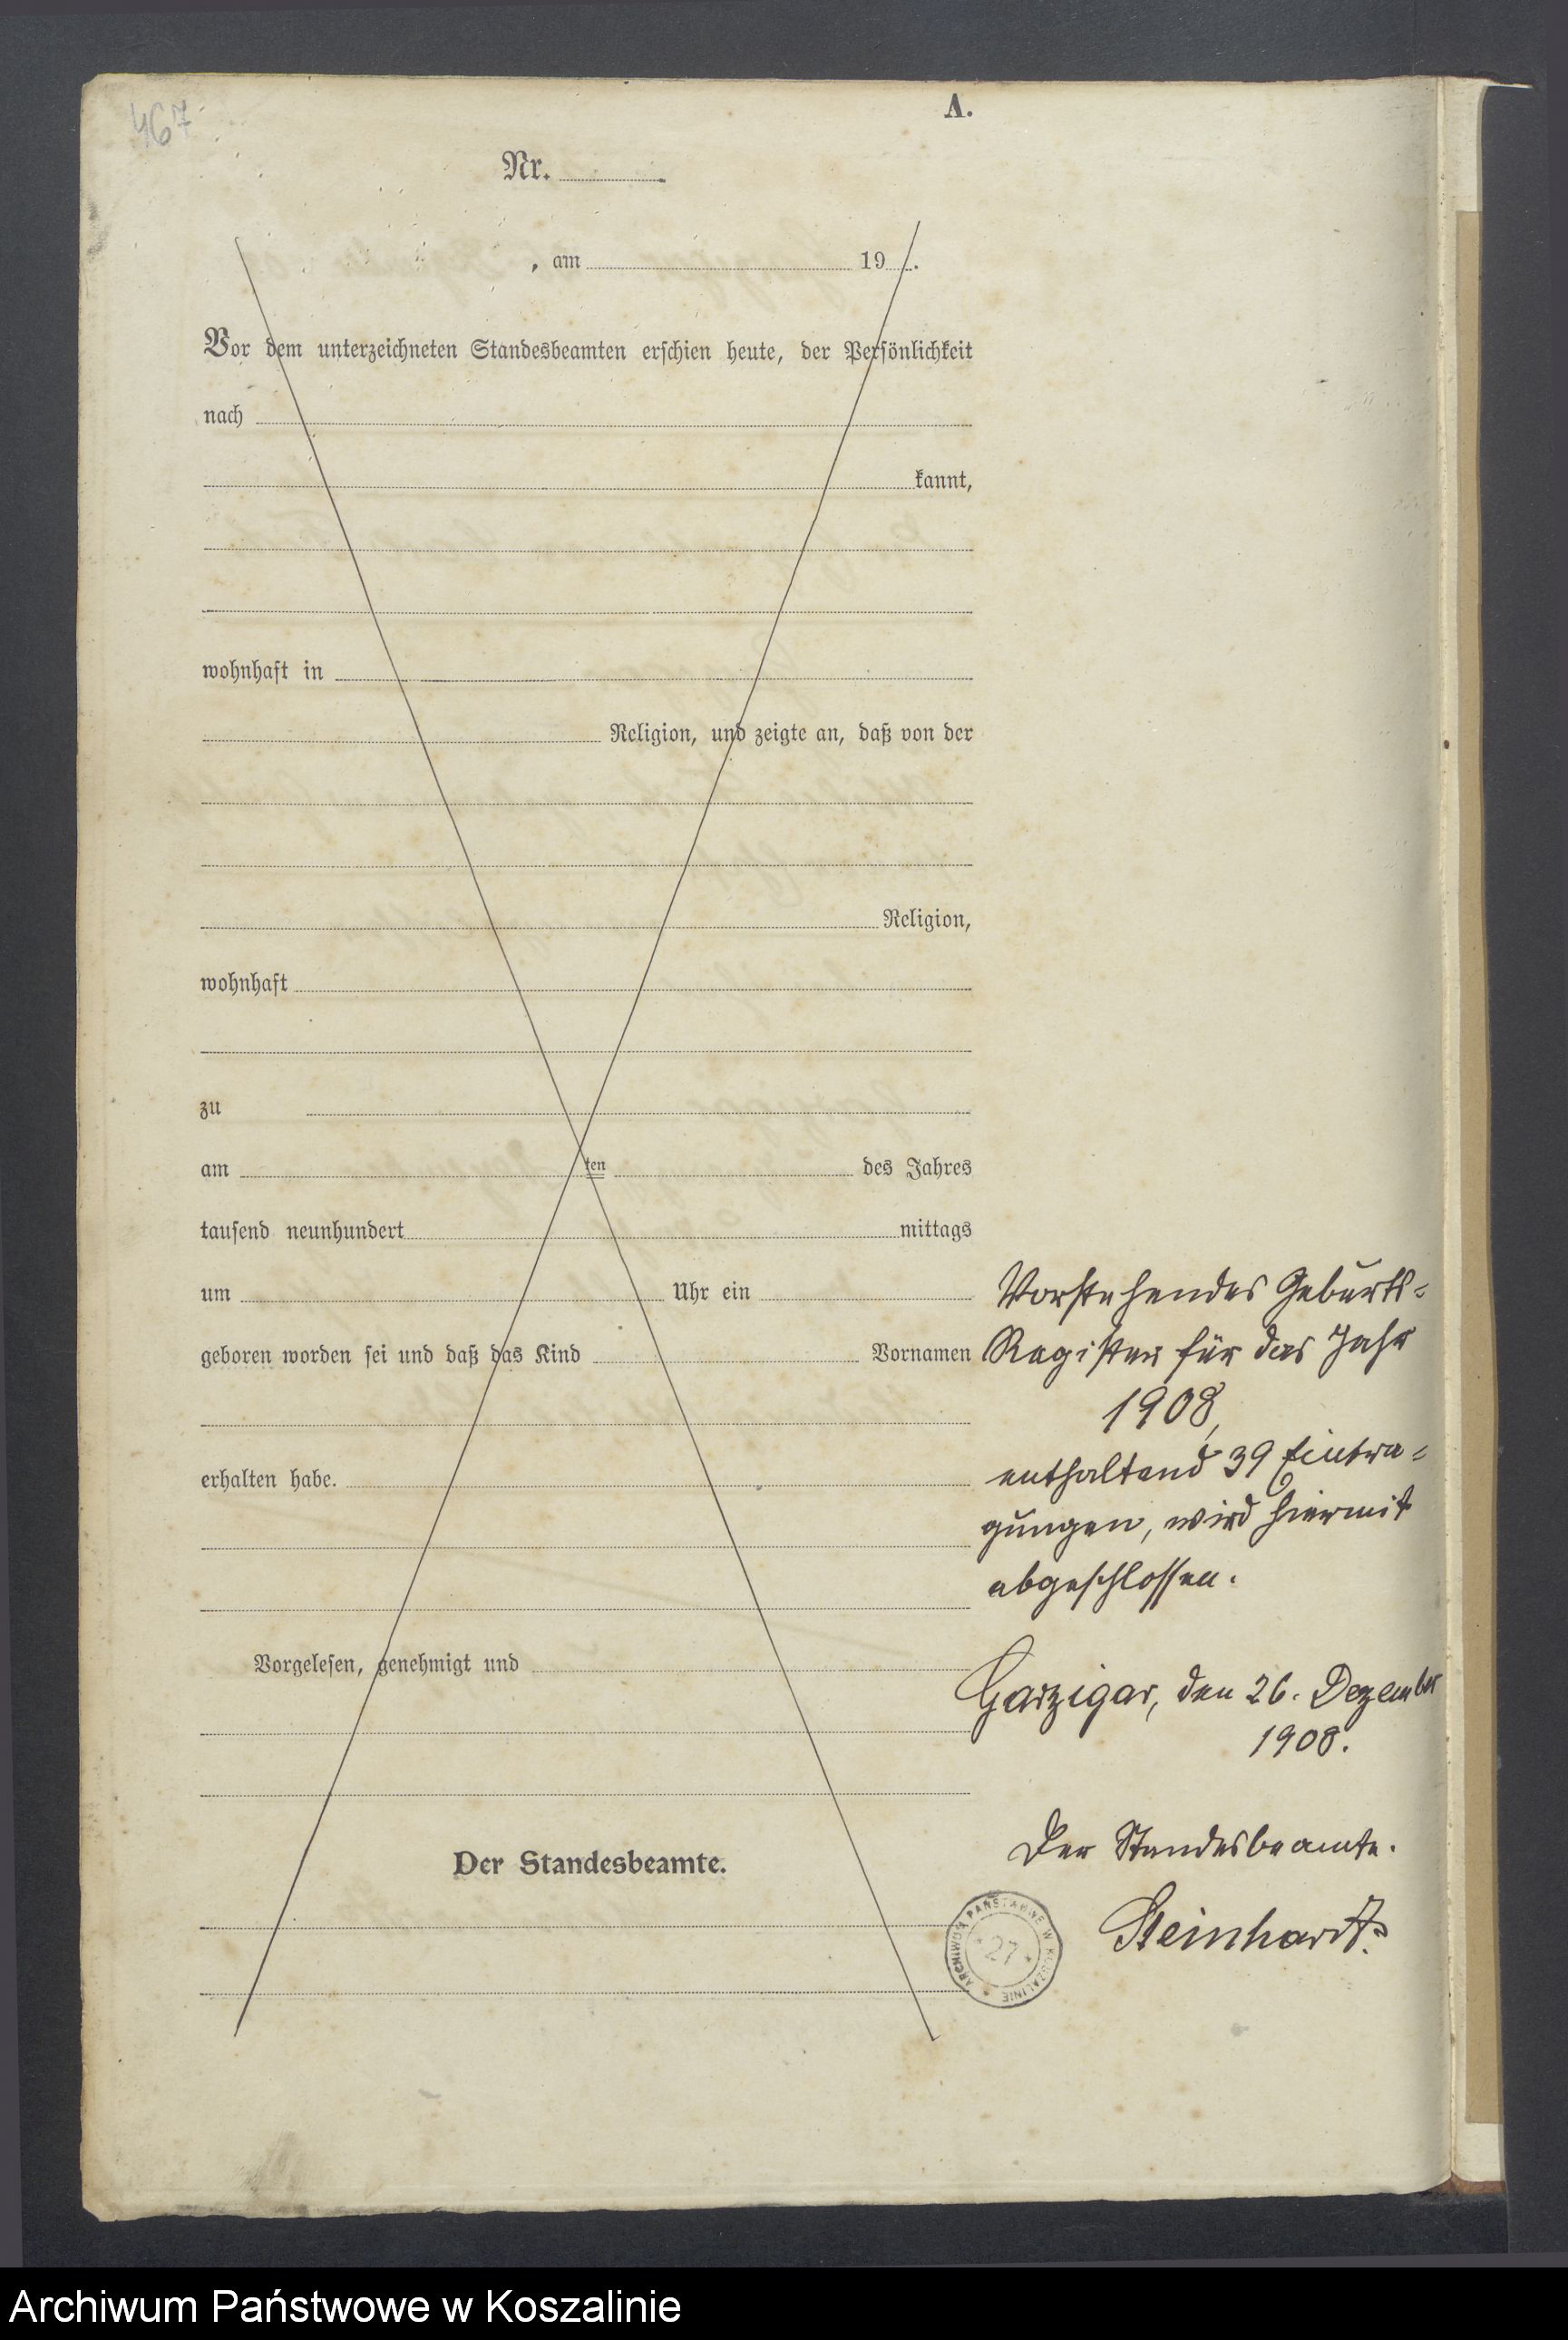 467
A.
Nr.
, am 19 .
Vor dem unterzeichneten Standesbeamten erschien heute, der Persönlichkeit
nach
kannt,
wohnhaft in
Religion, und zeigte an, daß von der
Religion,
wohnhaft
zu
am ten des Jahres
tausend neunhundert mittags
um Uhr ein
geboren worden sei und daß das Kind Vornamen
erhalten habe.
Vorgelesen, genehmigt und
Der Standesbeamte.
Vorstehendes Geburts-
Register für das Jahr
1908,
enthaltend 39 Eintra-
gungen, wird hiermit
abgeschlossen.
Garzigar, den 26. Dezember
1908.
Der Standesbeamte.
Steinhardt.
ARCHIWUM PAŃSTWOWE W KOSZALINIE
27
Archiwum Państwowe w Koszalinie